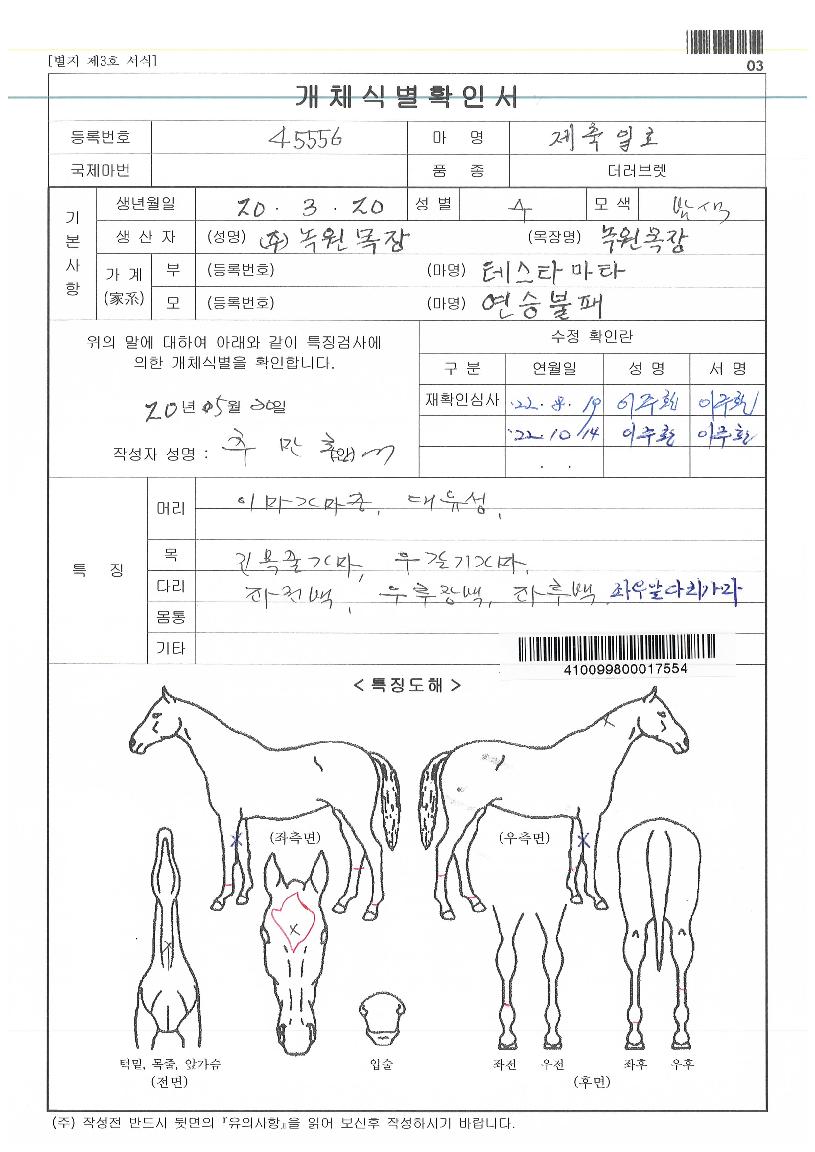 [별지 제3호 서식]
03
개체식별확인서
등록번호 45556 마 명 제축일로
국제마번 품 종 더러브렛
기본사항
생년월일 20 . 3 . 20 성 별 수 모 색 밤색
생 산 자 (성명) (주)녹원목장 (목장명) 녹원목장
가 계 (家系) 부 (등록번호) (마명) 테스타마타
모 (등록번호) (마명) 연승불패
위의 말에 대하여 아래와 같이 특징검사에
의한 개체식별을 확인합니다.
20년 05월 30일
작성자 성명 : 추만호 (인)
수정 확인란
구 분 연월일 성 명 서 명
재확인심사 '22. 8. 19 이주헌 이주헌
'22. 10. 14 이주헌 이주헌
. .
특 징
머리 이마가마중, 대유성,
목 긴목줄가마, 우갈기가마,
다리 좌전백, 우후장백, 좌후백, 좌우앞다리가마
몸통
기타
410099800017554
< 특징도해 >
(좌측면) (우측면)
턱밑, 목줄, 앞가슴 입술 좌전 우전 좌후 우후
(전면) (후면)
(주) 작성전 반드시 뒷면의 『유의사항』을 읽어 보신후 작성하시기 바랍니다.